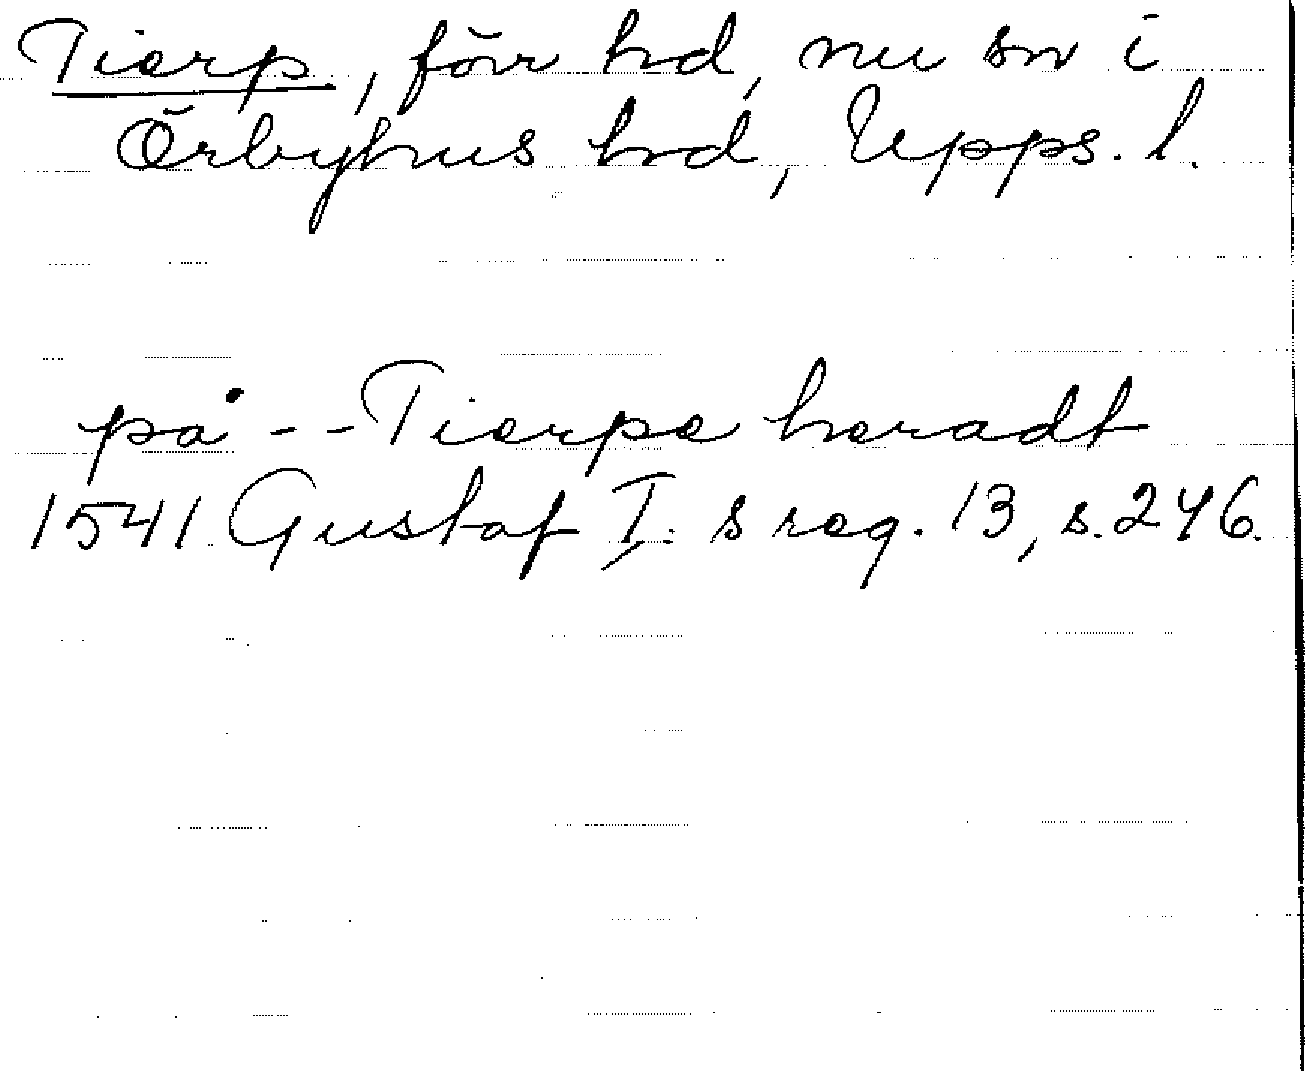 Tierp, förr hd, nu sn i
Örbyhus hd, Upps. l.
på -- Tierpe heradt
1541 Gustaf I:s reg. 13, s. 246.